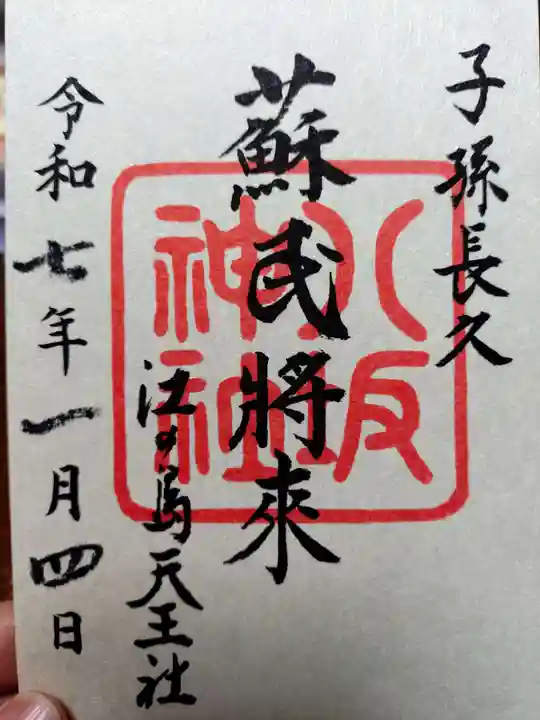 子孫長久
蘇民將來
江の島天王社
令和七年一月四日
八坂神社